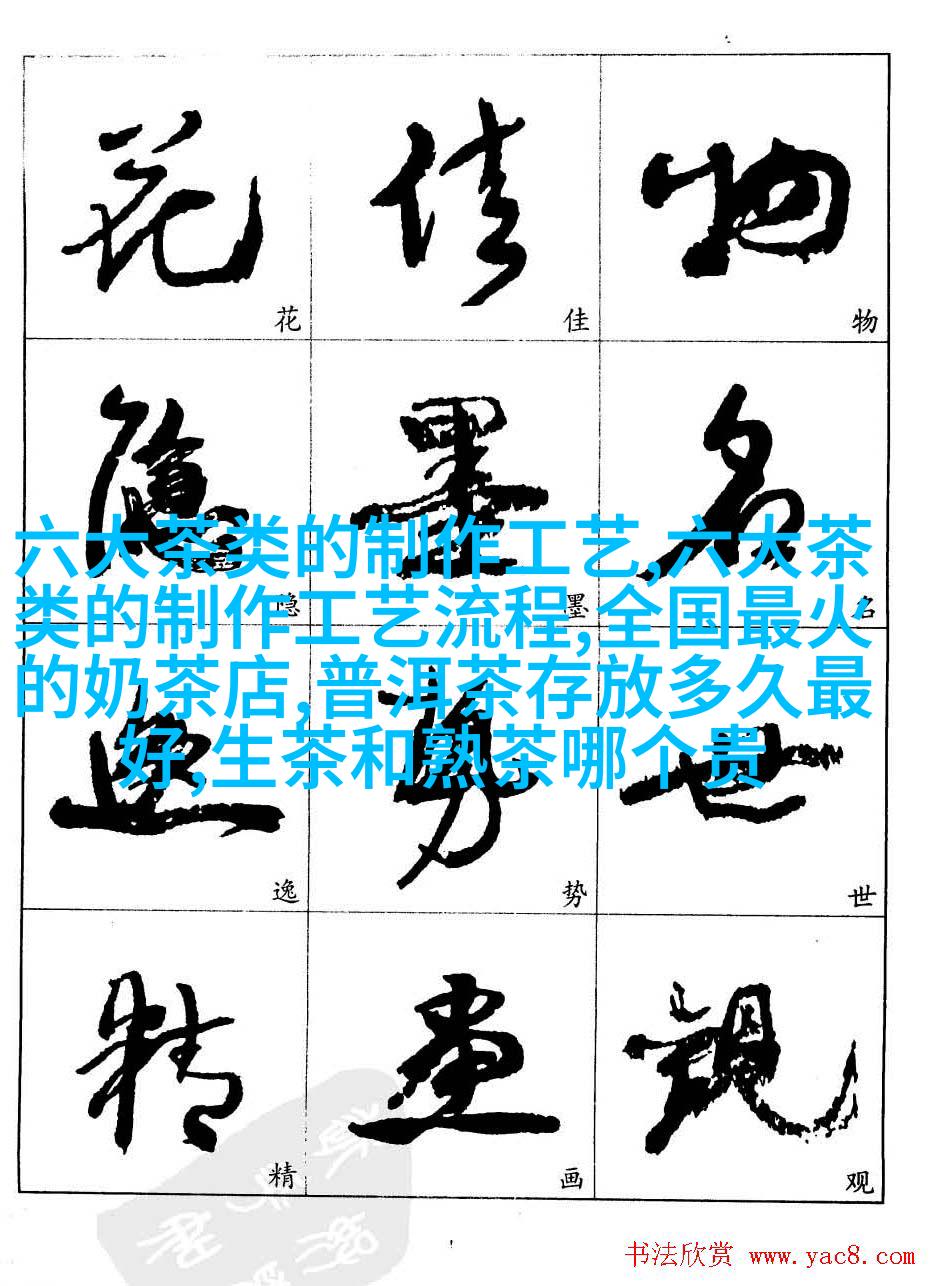 花 佳 物
花 佳 物
隐 墨 名
隐 墨 名
六大茶类的制作工艺,六大茶
类的制作工艺流程,全国最火
的奶茶店,普洱茶存放多久最
好,生茶和熟茶哪个贵
逸 势 世
逸 势 世
精 画 观
精 画 观
书法欣赏 www.yac8.com